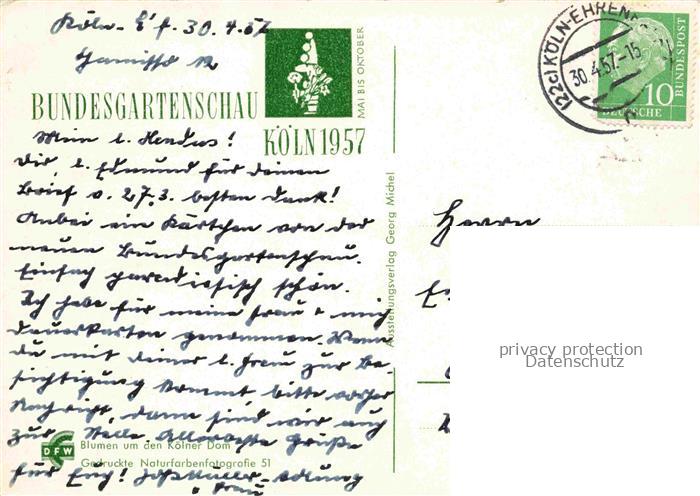 Köln-E'f. 30.4.57
BUNDESGARTENSCHAU
KÖLN 1957
MAI BIS OKTOBER
Mein l.
Dir, l. Edmund für deinen
Brief v. 27.3. besten Dank!
Anbei ein Kärtchen von der
neuen Bundesgartenschau.
Einfach paradiesisch schön.
Ich habe für meine Frau + mich
Dauerkarten genommen. Wenn
du mit deiner l. Frau zur Be-
sichtigung kommst bitte vorher
Nachricht, dann sind wir auch
zur Stelle. Allerbeste Grüße
für Euch!
+ Frau
DFW
Blumen um den Kölner Dom
Gedruckte Naturfarbenfotografie 51
Ausstellungsverlag Georg Michel
(22c) KÖLN-EHREN
30.4.57.-15
10
DEUTSCHE
BUNDESPOST
Herrn
privacy protection
Datenschutz